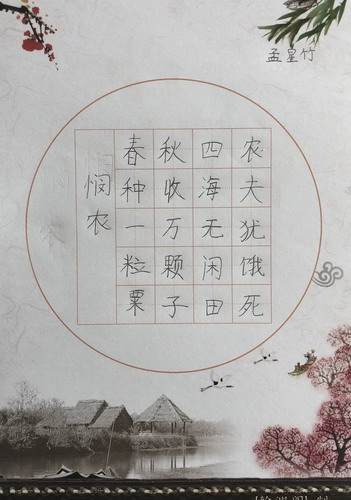 孟星竹
悯农
春种一粒粟
秋收万颗子
四海无闲田
农夫犹饿死